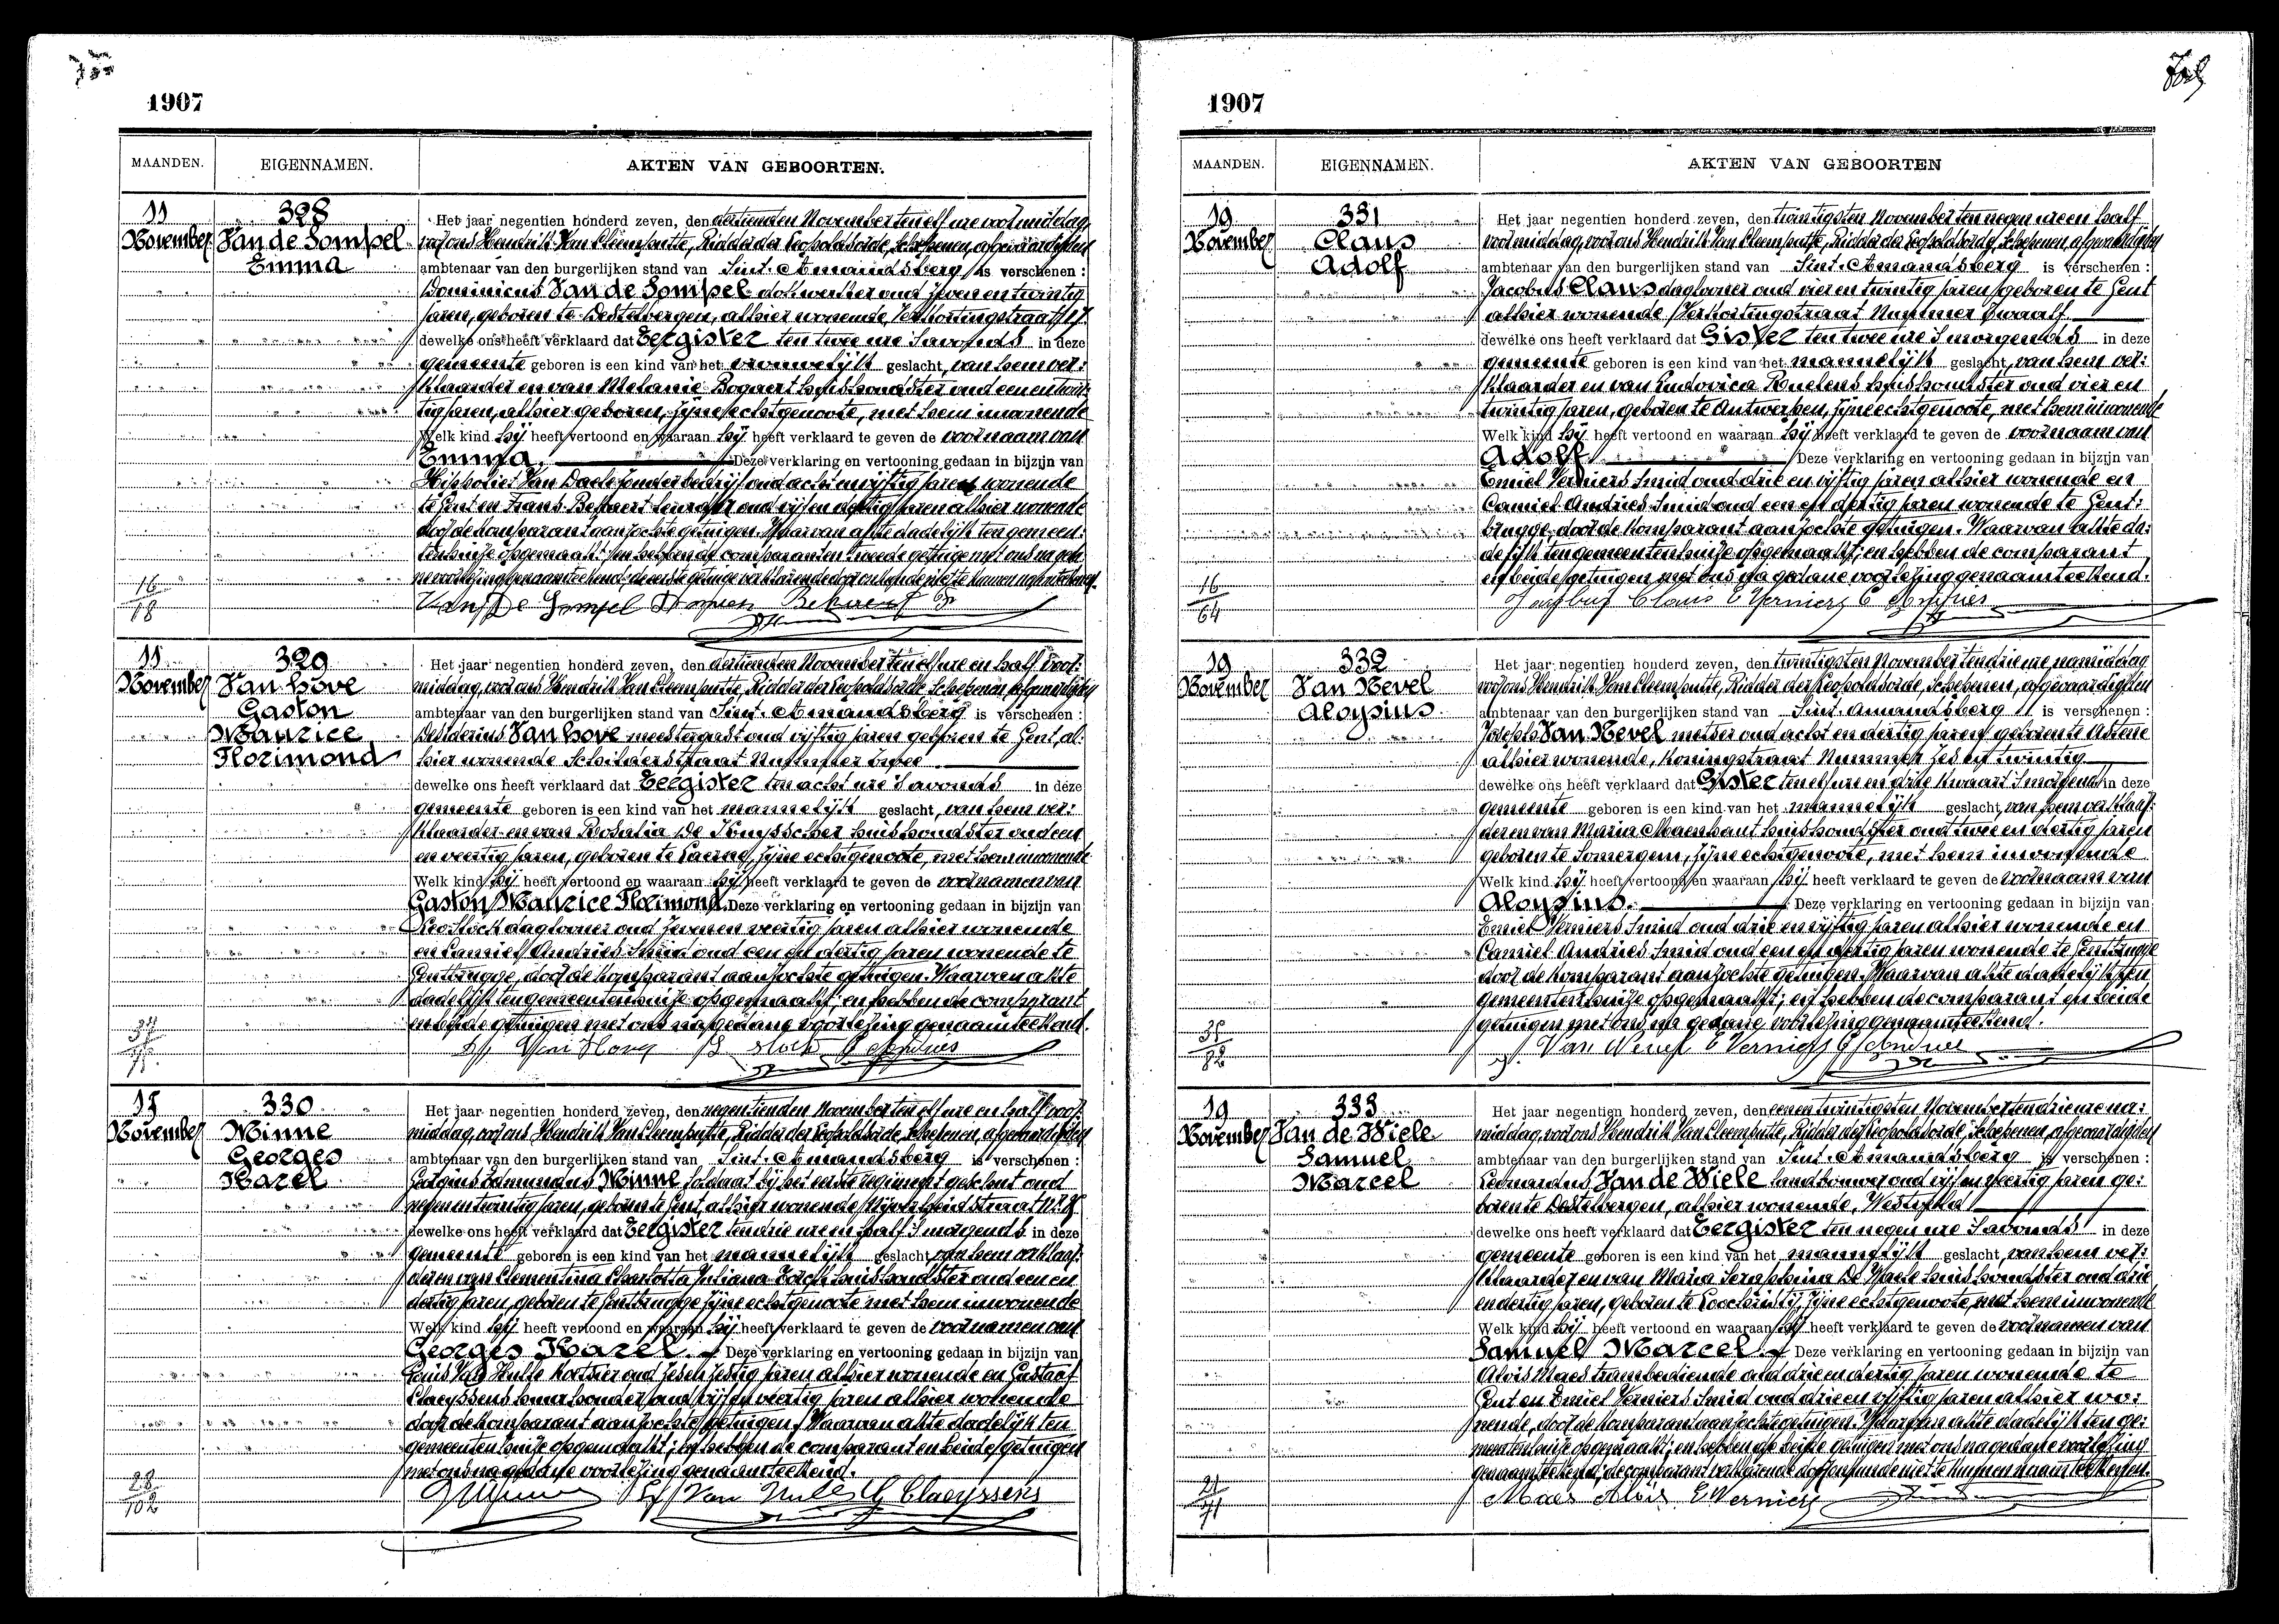 1907
MAANDEN. EIGENNAMEN. AKTEN VAN GEBOORTEN.
11 November
328
Van de Sompel
Emma
Het jaar negentien honderd zeven, den dertienden November ten elf ure voormiddag,
voor ons Hendrik Van Cleemputte, Ridder der Leopoldsorde, Schepenen, afgevaardigden
ambtenaar van den burgerlijken stand van Sint-Amandsberg is verschenen:
Dominicus Van de Sompel dokwerker oud zeven en twintig
jaren, geboren te Destelbergen, alhier wonende, Verkortingstraat, 17.
dewelke ons heeft verklaard dat Eergister ten twee ure 's avonds in deze
gemeente geboren is een kind van het vrouwelijk geslacht, van hem ver:
klaarder en van Melanie Bogaert huishoudster oud een en twin:
tig jaren, alhier geboren, zijne echtgenoote, met hem inwonende
Welk kind hij heeft vertoond en waaraan hij heeft verklaard te geven de voornaam van
Emma. Deze verklaring en vertooning gedaan in bijzijn van
Hippoliet Van Daele zonder bedrijf oud acht en vijftig jaren wonende
te Gent en Frans Bekaert leurder oud vijf en dertig jaren alhier wonende
door de komparant aanzochte getuigen. Waarvan akte dadelijk ten gemeen:
tenhuize opgemaakt; en hebben de comparant en tweede getuige met ons na geda:
ne voorlezing genaamteekend; de eerste getuige verklarende door onkunde niet te kunnen naamteekenen.
16
18
11 November
329
Van hove
Gaston
Maurice
Florimond
Het jaar negentien honderd zeven, den dertienden November ten elf ure en half voor:
middag, voor ons Hendrik Van Cleemputte, Ridder der Leopoldsorde Schepenen afgevaardigden
ambtenaar van den burgerlijken stand van Sint-Amandsberg is verschenen:
Desiderius Van hove meestergast oud vijftig jaren geboren te Gent, al:
hier wonende Schilderstraat Nummer twee
dewelke ons heeft verklaard dat Eergister ten acht ure 's avonds in deze
gemeente geboren is een kind van het mannelijk geslacht, van hem ver:
klaarder en van Rosalia De Kuysscher huishoudster oud een
en veertig jaren, geboren te Laerne, zijne echtgenoote, met hem inwonende
Welk kind hij heeft vertoond en waaraan hij heeft verklaard te geven de voornamen van
Gaston Maurice Florimond. Deze verklaring en vertooning gedaan in bijzijn van
Leo Stock daglooner oud zeven en veertig jaren alhier wonende
en Camiel Andries Smid oud een en dertig jaren wonende te
Gentbrugge, door de komparant aanzochte getuigen. Waarvan akte
dadelijk ten gemeentenhuize opgemaakt; en hebben de comparant
en beide getuigen met ons na gedane voorlezing genaamteekend.
15 November
330
Minne
Georges
Karel
Het jaar negentien honderd zeven, den negentienden November ten elf ure en half voor:
middag, voor ons Hendrik Van Cleemputte, Ridder der Leopoldsorde Schepenen, afgevaardigden
ambtenaar van den burgerlijken stand van Sint-Amandsberg is verschenen:
Georgius Edmundus Minne soldaat bij het eerste regiment geschut oud
negen en twintig jaren, geboren te Gent, alhier wonende Nijverheidstraat
dewelke ons heeft verklaard dat Eergister ten drie ure en half 's morgends in deze
gemeente geboren is een kind van het mannelijk geslacht van hem verklaar:
der en van Clementina Charlotta Juliana huishoudster oud een en
dertig jaren, geboren te Gentbrugge zijne echtgenoote met hem inwonende
Welk kind hij heeft vertoond en waaraan hij heeft verklaard te geven de voornamen van
Georges Karel. Deze verklaring en vertooning gedaan in bijzijn van
Louis Van Hulle koetsier oud zes en zestig jaren alhier wonende en Gustaaf
Claeyssens huurhouder oud vijf en veertig jaren alhier wonende
door de komparant aanzochte getuigen. Waarvan akte dadelijk ten
gemeentenhuize opgemaakt; en hebben de comparant en beide getuigen
met ons na gedane voorlezing genaamteekend.
G Claeyssens
28
102
1907
MAANDEN. EIGENNAMEN. AKTEN VAN GEBOORTEN
19 November
331
Claus
Adolf
Het jaar negentien honderd zeven, den twintigsten November ten negen ure en half
voormiddag, voor ons Hendrik Van Cleemputte, Ridder der Leopoldsorde, Schepenen, afgevaardigden
ambtenaar van den burgerlijken stand van Sint-Amandsberg is verschenen:
Jacobus Claus daglooner oud vier en twintig jaren, geboren te Gent
alhier wonende, Verkortingstraat Nummer twaalf
dewelke ons heeft verklaard dat Gister ten twee ure 's morgends in deze
gemeente geboren is een kind van het mannelijk geslacht, van hem ver:
klaarder en van Ludovica Roelens huishoudster oud vier en
twintig jaren, geboren te Antwerpen, zijne echtgenoote, met hem inwonende
Welk kind hij heeft vertoond en waaraan hij heeft verklaard te geven de voornaam van
Adolf. Deze verklaring en vertooning gedaan in bijzijn van
Emiel Verniers Smid oud drie en vijftig jaren alhier wonende en
Camiel Andries Smid oud een en dertig jaren wonende te Gent:
brugge, door de komparant aanzochte getuigen. Waarvan akte da:
delijk ten gemeentenhuize opgemaakt; en hebben de comparant
en beide getuigen met ons na gedane voorlezing genaamteekend.
Claus E Verniers
16
64
19 November
332
Van Nevel
Aloysius
Het jaar negentien honderd zeven, den twintigsten November ten drie ure namiddag
voor ons Hendrik Van Cleemputte, Ridder der Leopoldsorde, Schepenen, afgevaardigden
ambtenaar van den burgerlijken stand van Sint-Amandsberg is verschenen:
Joseph Van Nevel metser oud acht en dertig jaren geboren te Astene
alhier wonende, Koningstraat Nummer Zes en twintig
dewelke ons heeft verklaard dat Gister ten elf ure en drie kwaart 's morgends in deze
gemeente geboren is een kind van het mannelijk geslacht, van hem verklaar:
der en van Maria Meerhaut huishoudster oud twee en dertig jaren
geboren te Somergem, zijne echtgenoote, met hem inwonende
Welk kind hij heeft vertoond en waaraan hij heeft verklaard te geven de voornaam van
Aloysius. Deze verklaring en vertooning gedaan in bijzijn van
Emiel Verniers Smid oud drie en vijftig jaren alhier wonende en
Camiel Andries Smid oud een en dertig jaren wonende te Gentbrugge
door de komparant aanzochte getuigen. Waarvan akte dadelijk ten
gemeentenhuize opgemaakt; en hebben de comparant en beide
getuigen met ons na gedane voorlezing genaamteekend.
E Verniers
82
19 November
333
Van de Wiele
Samuel
Marcel
Het jaar negentien honderd zeven, den eenen twintigsten November ten drie ure na:
middag, voor ons Hendrik Van Cleemputte, Ridder der Leopoldsorde, Schepenen, afgevaardigden
ambtenaar van den burgerlijken stand van Sint-Amandsberg is verschenen:
Leonardus Van de Wiele landbouwer oud vijf en veertig jaren ge:
boren te Destelbergen, alhier wonende, Westveld
dewelke ons heeft verklaard dat Eergister ten negen ure 's avonds in deze
gemeente geboren is een kind van het mannelijk geslacht, van hem ver:
klaarder en van Maria Seraphina De Waele huishoudster oud drie
en dertig jaren, geboren te Loochristij, zijne echtgenoote, met hem inwonende
Welk kind hij heeft vertoond en waaraan hij heeft verklaard te geven de voornamen van
Samuel Marcel. Deze verklaring en vertooning gedaan in bijzijn van
Alois Maes trambediende oud drie en dertig jaren wonende te
Gent en Emiel Verniers Smid oud drie en vijftig jaren alhier wo:
nende, door de komparant aanzochte getuigen. Waarvan akte dadelijk ten ge:
meentenhuize opgemaakt; en hebben de beide getuigen met ons na gedane voorlezing
genaamteekend; de comparant verklarende door onkunde niet te kunnen naamteekenen.
Maes Alois E Verniers
21
71